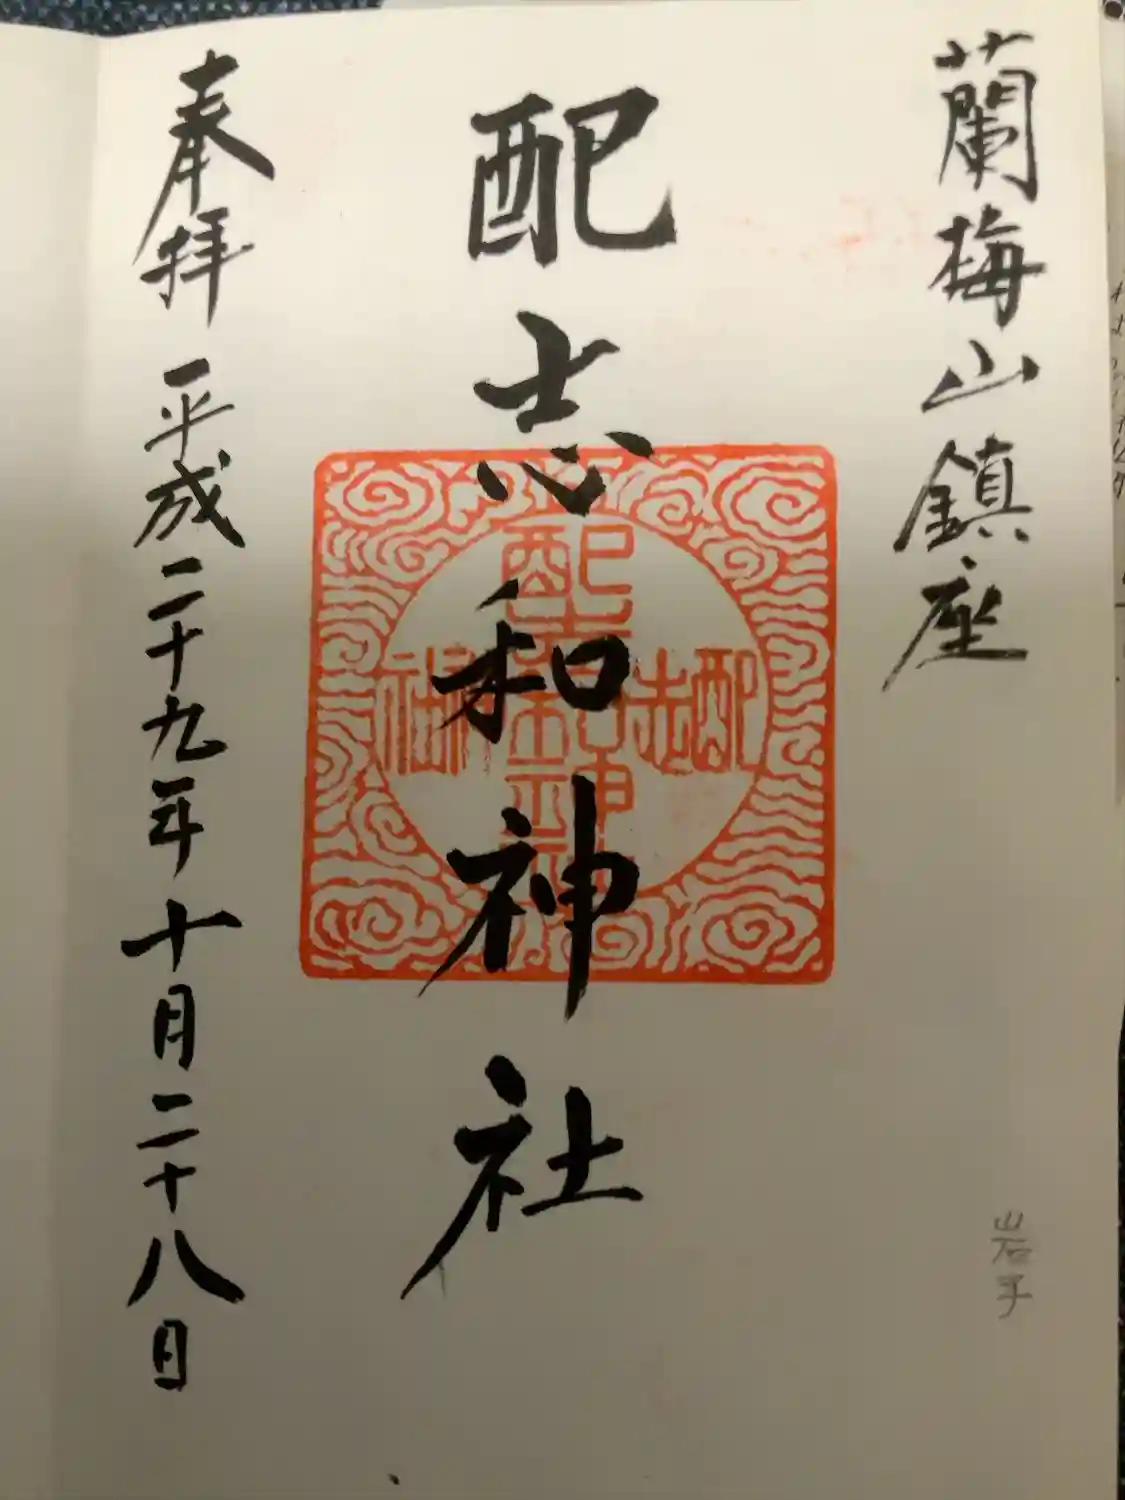 蘭梅山鎮座
配志和神社
奉拝 平成二十九年十月二十八日
配志和神
岩手